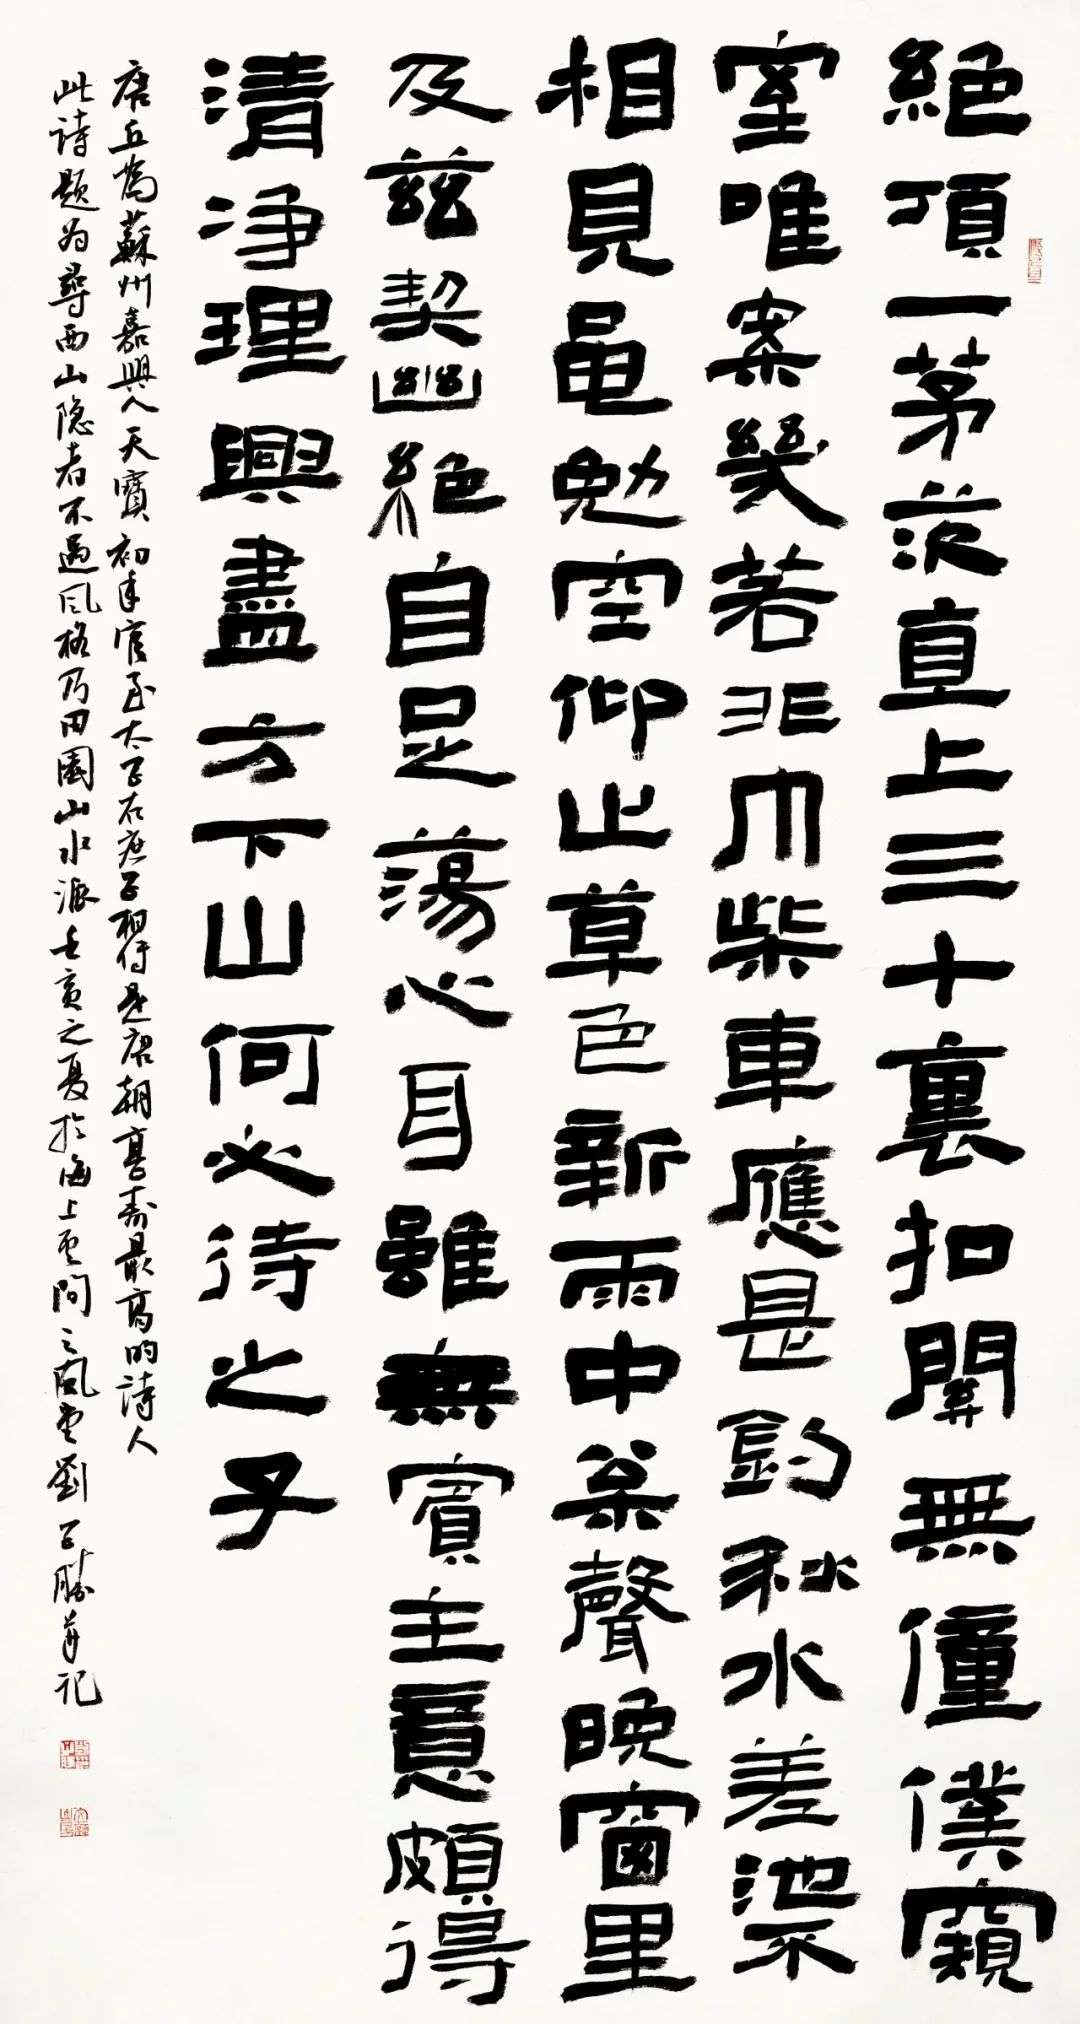 絕頂一茅茨直上三十裏扣關無僮僕窺
室唯案幾若非巾柴車應是釣秋水差池不
相見黽勉空仰止草色新雨中枀聲晚窗里
及茲契幽絕自足蕩心耳雖無賓主意頗得
清净理興盡方下山何必待之子
唐丘為蘇州嘉興人天寶初年官至太子右庶子相傳是唐朝享壽最高的詩人
此詩題为尋西山隐者不遇风格乃田園山水派壬寅之夏於海上雲間之風堂劉子勝并記